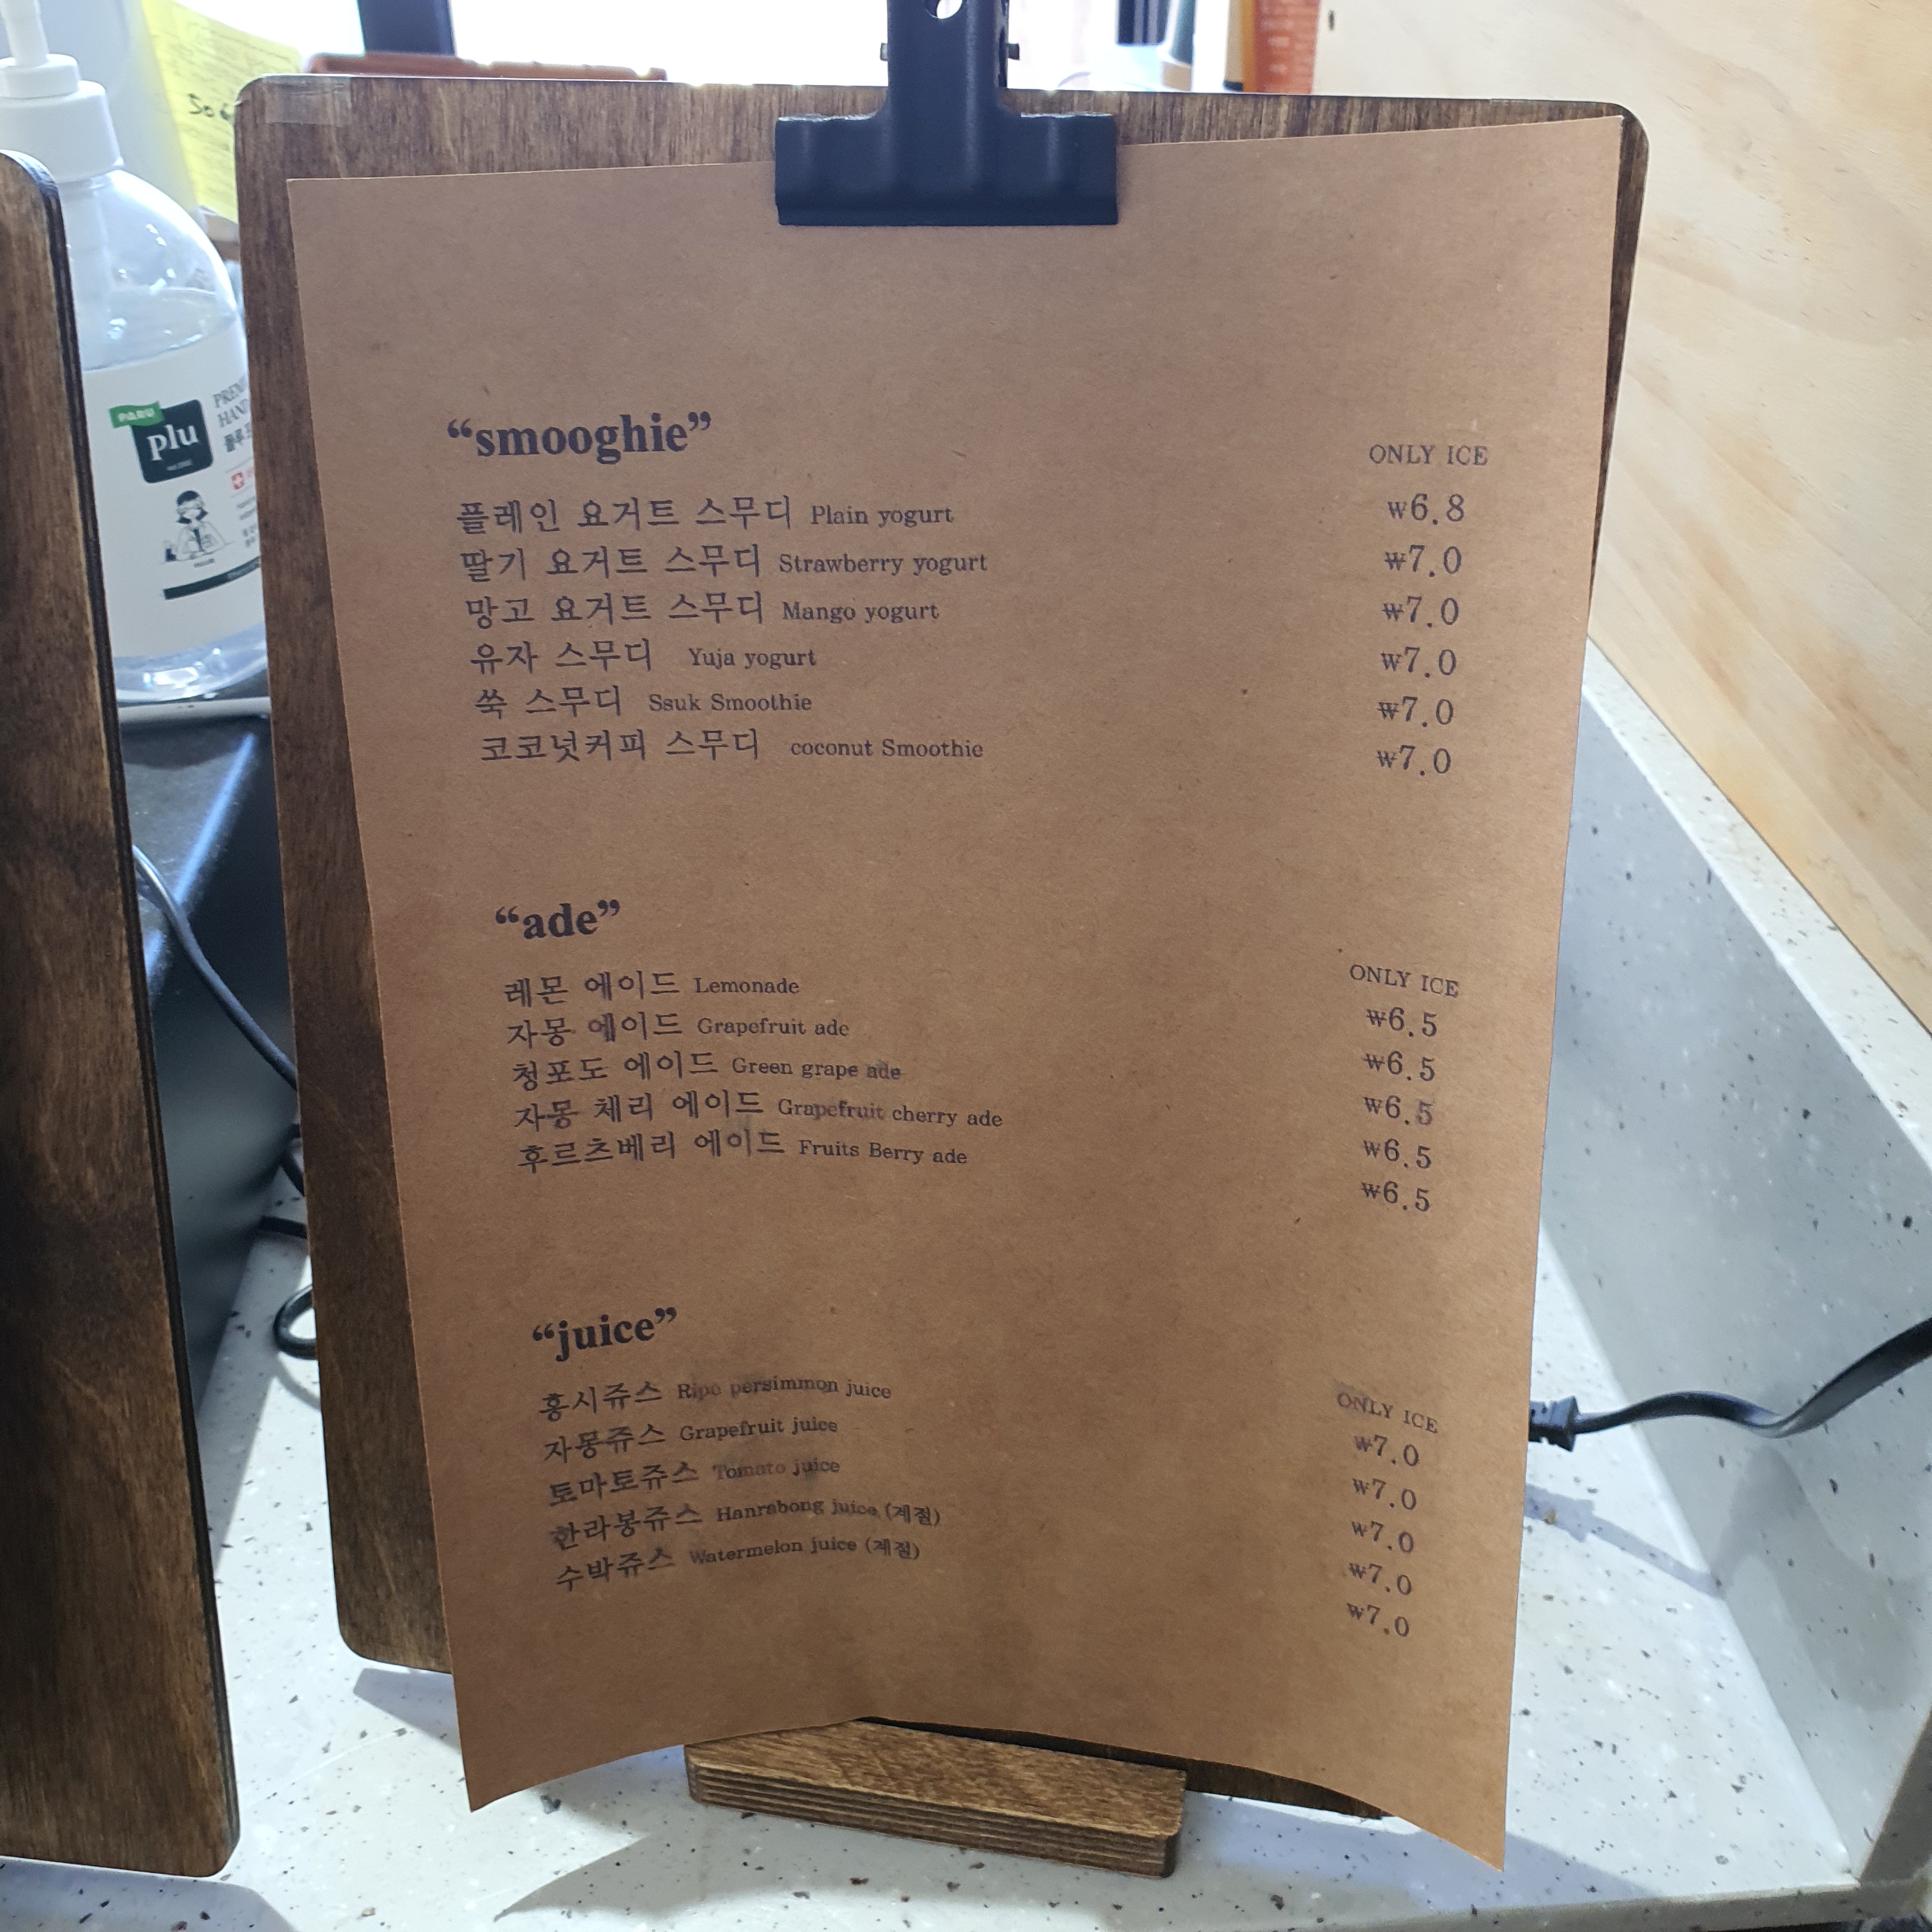 So
PARU
plu
PREMI
HAND
"smooghie"
ONLY ICE
플레인 요거트 스무디 Plain yogurt ₩6.8
딸기 요거트 스무디 Strawberry yogurt ₩7.0
망고 요거트 스무디 Mango yogurt ₩7.0
유자 스무디 Yuja yogurt ₩7.0
쑥 스무디 Ssuk Smoothie ₩7.0
코코넛커피 스무디 coconut Smoothie ₩7.0
"ade"
ONLY ICE
레몬 에이드 Lemonade ₩6.5
자몽 에이드 Grapefruit ade ₩6.5
청포도 에이드 Green grape ade ₩6.5
자몽 체리 에이드 Grapefruit cherry ade ₩6.5
후르츠베리 에이드 Fruits Berry ade ₩6.5
"juice"
ONLY ICE
홍시쥬스 Ripe persimmon juice ₩7.0
자몽쥬스 Grapefruit juice ₩7.0
토마토쥬스 Tomato juice ₩7.0
한라봉쥬스 Hanrabong juice (계절) ₩7.0
수박쥬스 Watermelon juice (계절) ₩7.0